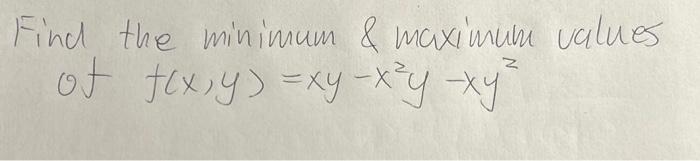 Find the minimum & maximum values
of f(x,y) = xy - x²y - xy²